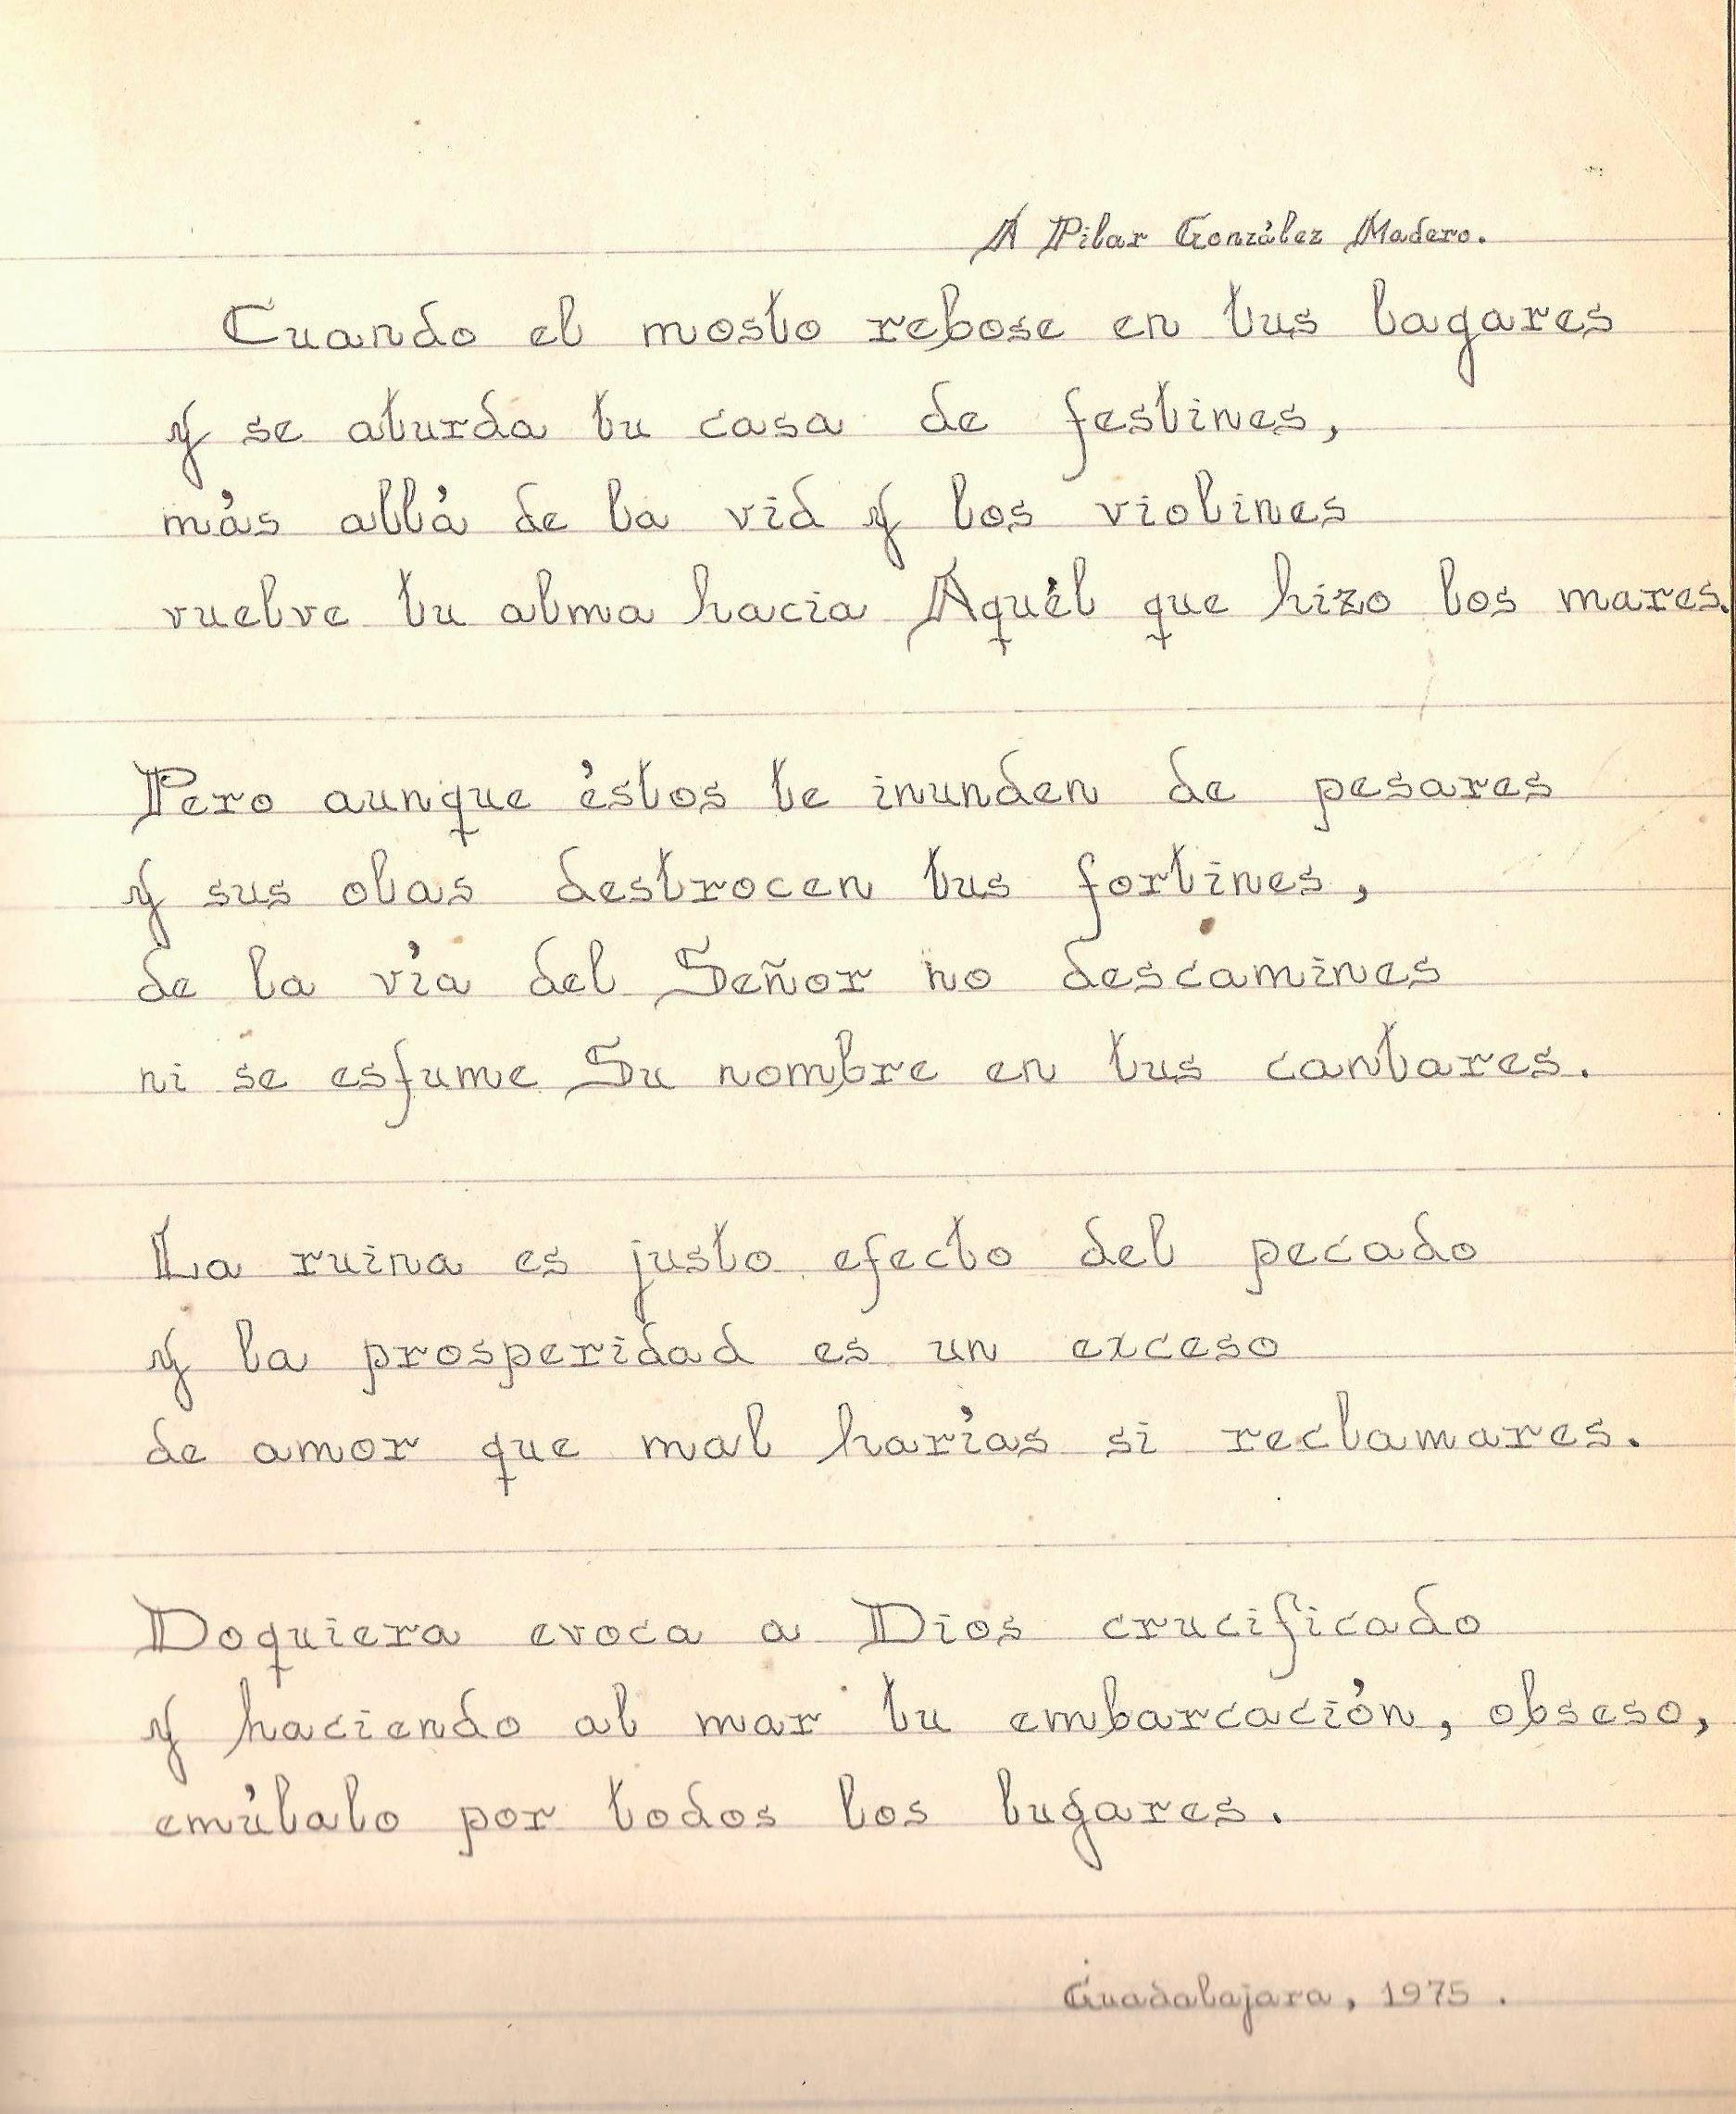 A Pilar González Madero.
Cuando el mosto rebose en tus lagares
y se aturda tu casa de festines,
más allá de la vid y los violines
vuelve tu alma hacia Aquél que hizo los mares.
Pero aunque éstos te inunden de pesares
y sus olas destrocen tus fortines,
de la vía del Señor no descamines
ni se esfume Su nombre en tus cantares.
La ruina es justo efecto del pecado
y la prosperidad es un exceso
de amor que mal harías si reclamares.
Doquiera evoca a Dios crucificado
y haciendo al mar tu embarcación, obseso,
emúlalo por todos los lugares.
Guadalajara, 1975.